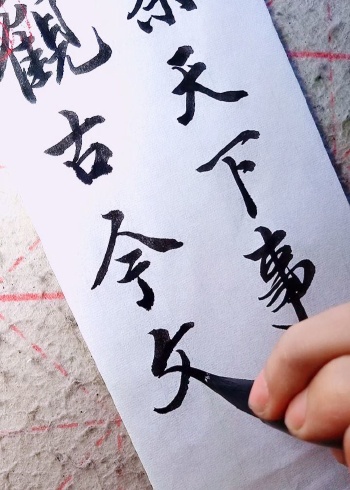 天下事
觀古今文